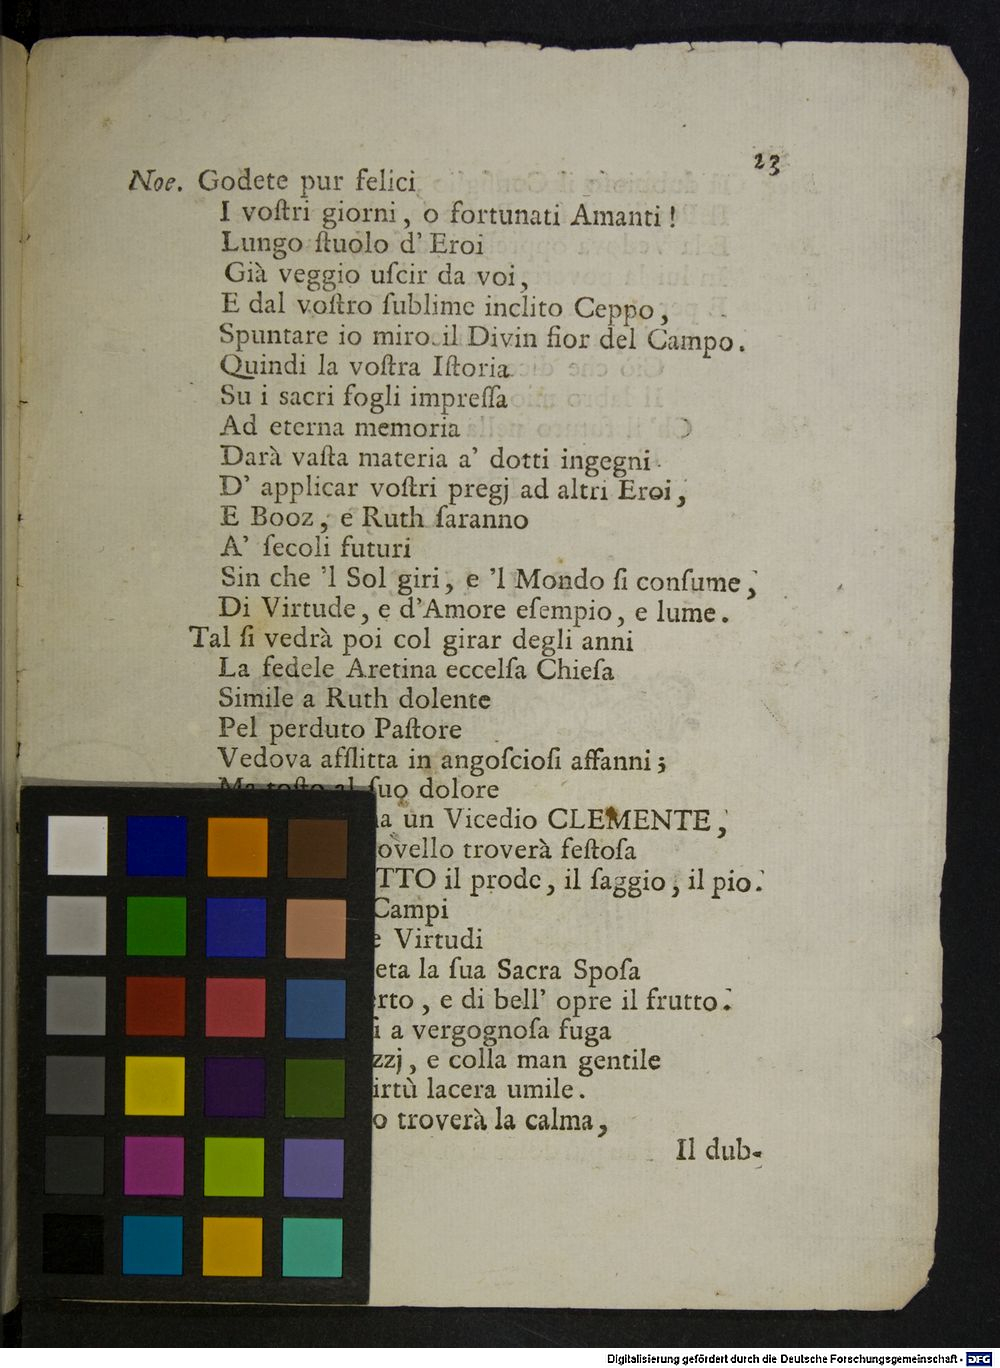 23
Noe. Godete pur felici
I voſtri giorni, o fortunati Amanti!
Lungo ſtuolo d' Eroi
Già veggio uſcir da voi,
E dal voſtro ſublime inclito Ceppo,
Spuntare io miro il Divin fior del Campo.
Quindi la voſtra Iſtoria
Su i sacri fogli impreſſa
Ad eterna memoria
Darà vaſta materia a' dotti ingegni
D' applicar voſtri pregj ad altri Eroi,
E Booz, e Ruth ſaranno
A' ſecoli futuri
Sin che 'l Sol giri, e 'l Mondo ſi conſume,
Di Virtude, e d'Amore eſempio, e lume.
Tal ſi vedrà poi col girar degli anni
La fedele Aretina eccelſa Chieſa
Simile a Ruth dolente
Pel perduto Paſtore
Vedova afflitta in angoſcioſi affanni;
Ma toſto al ſuo dolore
un Vicedio CLEMENTE,
ovello troverà feſtoſa
TTO il prode, il ſaggio, il pio.
Campi
e Virtudi
eta la ſua Sacra Spoſa
rto, e di bell' opre il frutto.
i a vergognoſa fuga
zzj, e colla man gentile
irtù lacera umile.
o troverà la calma,
Il dub-
Digitalisierung gefördert durch die Deutsche Forschungsgemeinschaft - DFG